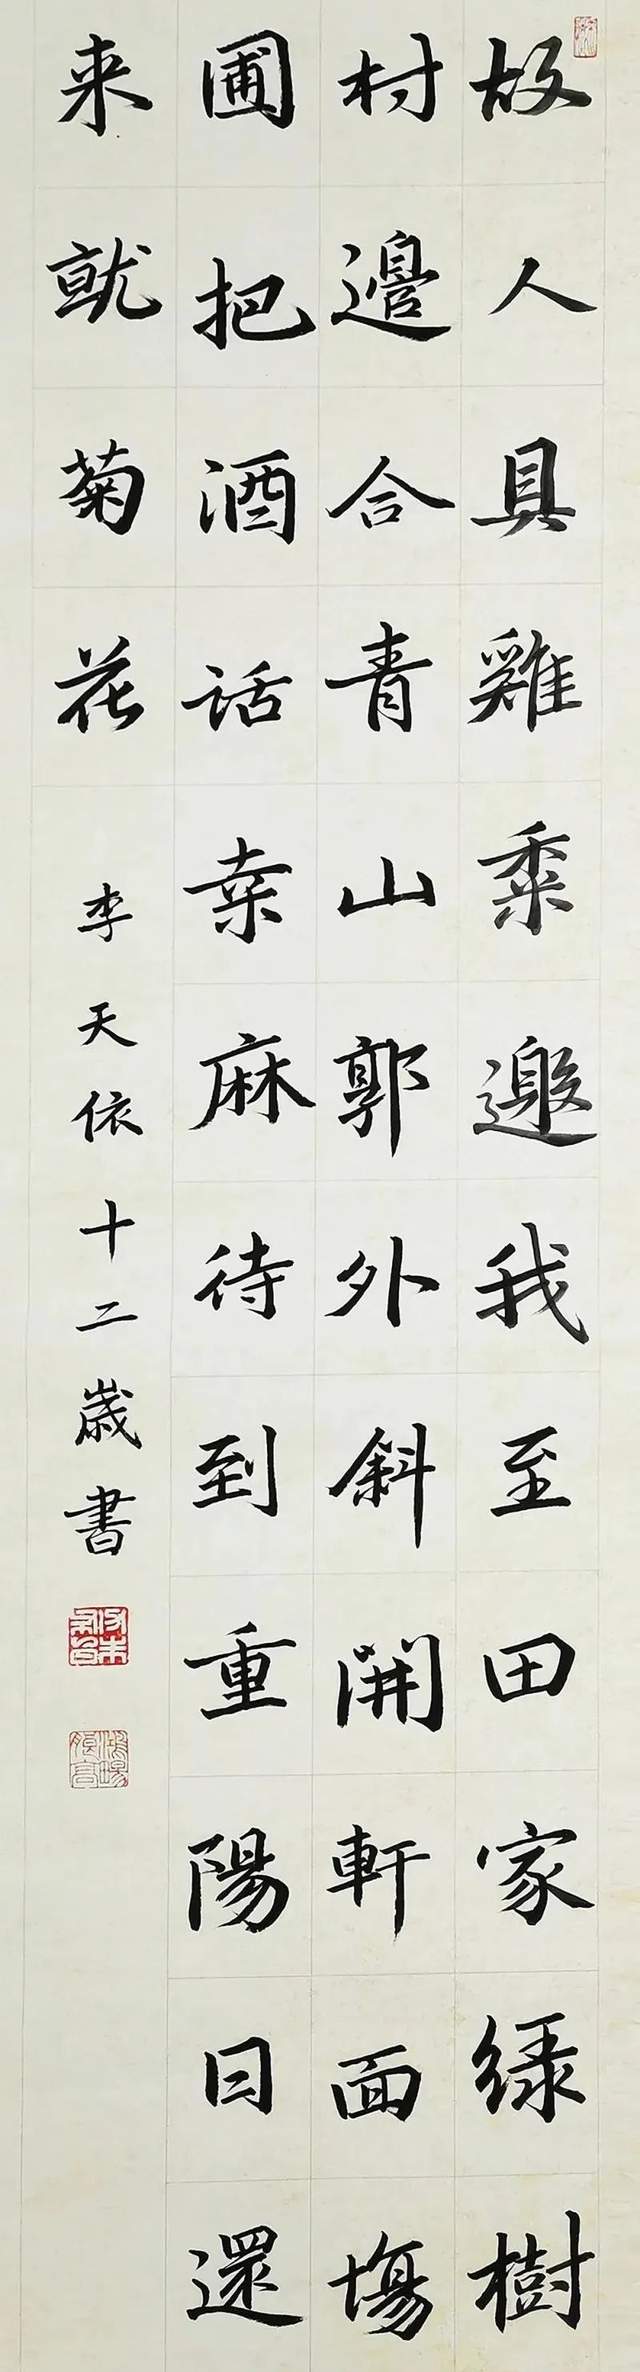 故人具雞黍邀我至田家綠樹
村邊合青山郭外斜開軒面場
圃把酒話桒麻待到重陽日還
来就菊花
李天依十二歲書